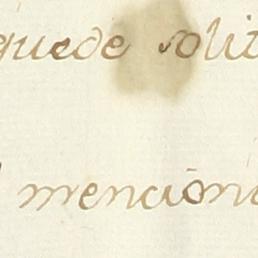 quede solit
mencion